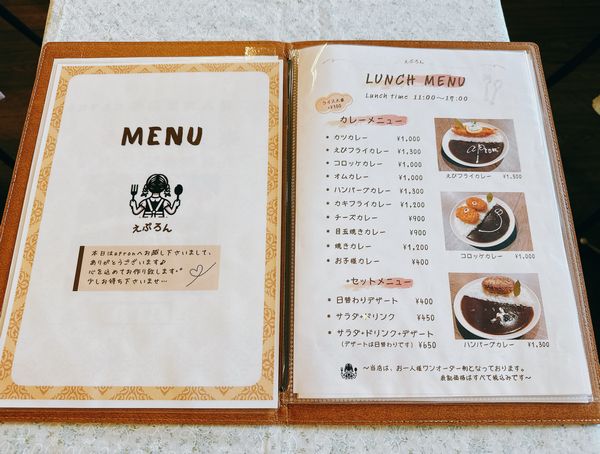 MENU
えぷろん
本日はapronへお越し下さいまして、
ありがとうございます♪
心を込めてお作り致します*
少しお待ち下さいませ…
えぷろん
LUNCH MENU
Lunch time 11:00～19:00
ライス大盛
+¥100
カレーメニュー
• カツカレー ¥1.000
• えびフライカレー ¥1.300
• コロッケカレー ¥1.000
• オムカレー ¥1.000
• ハンバーグカレー ¥1.300
• カキフライカレー ¥1.200
• チーズカレー ¥900
• 目玉焼きカレー ¥900
• 焼きカレー ¥1.200
• お子様カレー ¥400
セットメニュー
• 日替わりデザート ¥400
• サラダ+ドリンク ¥450
• サラダ+ドリンク+デザート
(デザートは日替わりです) ¥650
えびフライカレー ¥1.300
コロッケカレー ¥1.000
ハンバーグカレー ¥1.300
～当店は、お一人様ワンオーダー制となっております。
表記価格はすべて税込みです～